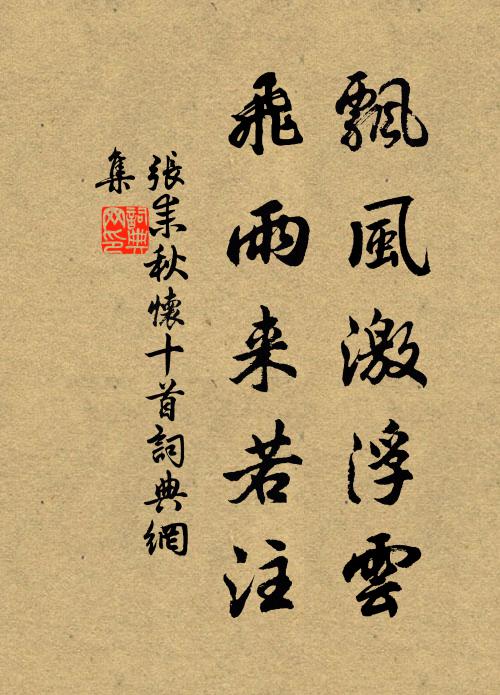 飄風激浮雲
飛雨来若注
張耒秋懷十首詞典網
集
詞典
网印